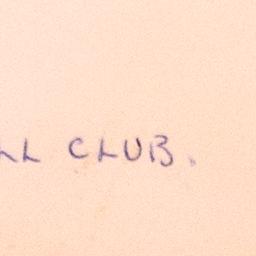 LL CLUB.